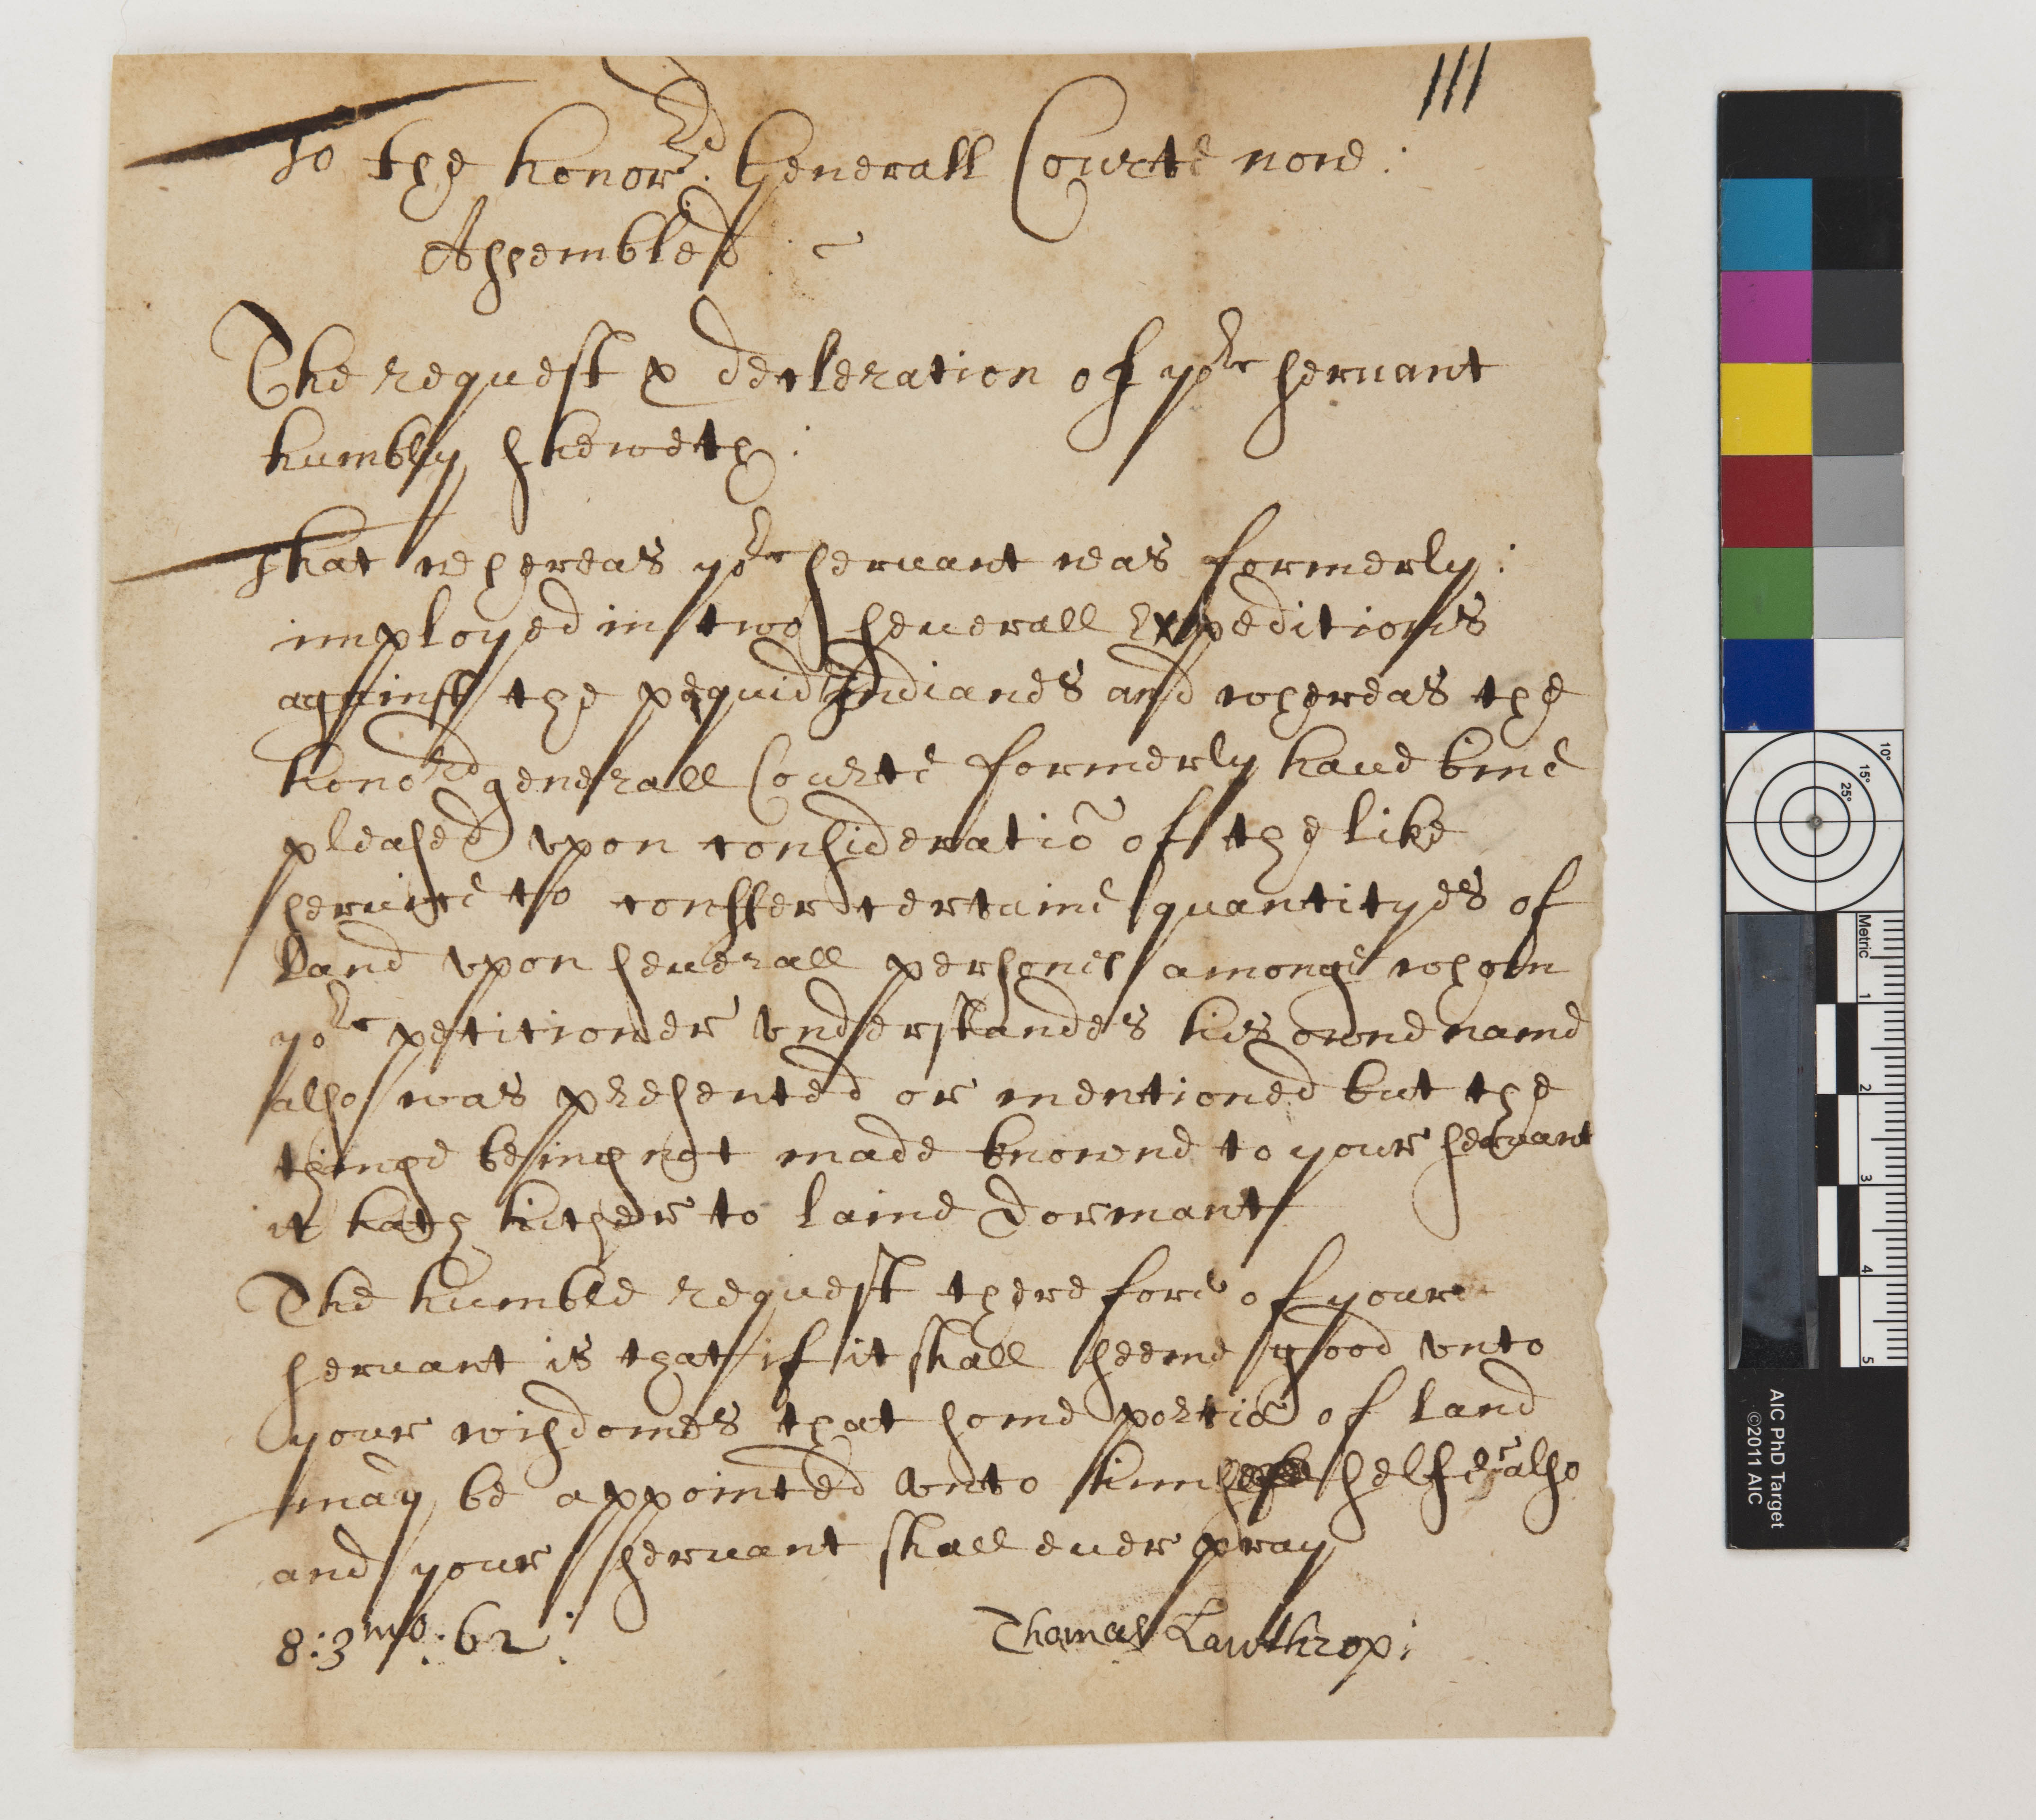 111
To the honor^rd: Generall Courte now:
Assembled :
The request & decleration of yo^r servant
humbly sheweth:
That whereas yo^r servant was formerly:
imployed in two severall Expeditions
against the pequid Indianes and whereas the
hono^rd generall Courte formerly have bine
pleased vpon consideratiō of the like
service to conffer certaine quantityes of
Land vpon severall persones amonge whom
yo^r petitioner vnderstandes his owne name
also was presented or mentioned but the
thinge being not made knowne to your servant
it hath hither to laine dormant
The humble request therefore of youre
servant is that if it shall seeme good vnto
your wisdomes that some portiō of land
may be appointed vnto him selfe also
and your servant shall ever pray
8:3^mo: 62:
Thomas Lawthrop:
Metric
1
2
3
4
5
10°
15°
25°
AIC PhD Target
©2011 AIC